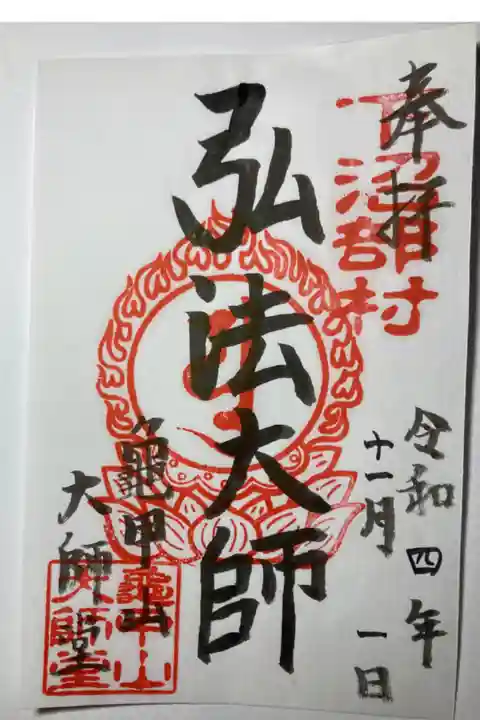 奉拝
下沼部村
令和四年
十一月一日
弘法大師
亀甲山
大師堂
亀甲山
大師堂